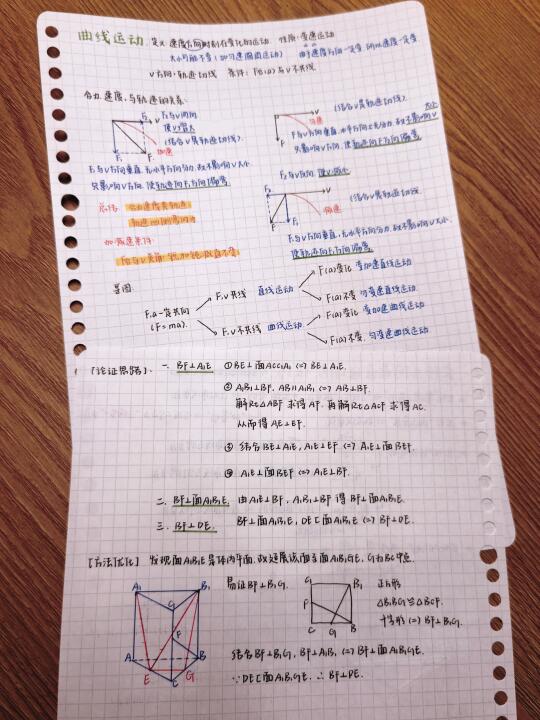 曲线运动
定义:速度方向时刻在变化的运动. 性质:变速运动
大小可能不变(如匀速圆周运动) 由于速度方向一定变,所以速度一定变
V方向:轨迹切线 条件:F合(a)与V不共线.
合力,速度,与轨迹的关系.
F₂与V同向
使V增大
(结合V是轨迹切线).
加速
F₁与V方向垂直,无水平方向分力,故不影响V大小
只影响V方向,使轨迹向F₁方向偏离
(结合V是轨迹切线).
匀速
F与V方向垂直,水平方向上无分力,故不影响V大小
只影响V方向,使轨迹向F方向偏离
F₂与V反向,使V减小
(结合V是轨迹切线
减速
F₁与V方向垂直,无水平方向分力,故不影响V大小.
使轨迹向F₁方向偏离
总结:
加减速条件:
导图:
F,a一定共向
(F=ma).
F,V共线 直线运动
F(a)变化 变加速直线运动
F(a)不变 匀变速直线运动.
F,V不共线 曲线运动.
F(a)变化 变加速曲线运动
F(a)不变. 匀变速曲线运动
[论证思路].
一. BF⊥A₁E ①BE⊥面ACC₁A₁ (=) BE⊥A₁E.
② A₁B₁⊥BF, AB∥A₁B₁ (=) AB⊥BF.
解Rt△ABF 求得AF. 再解Rt△ACF 求得AC.
从而得 AE⊥EF.
③ 结合BE⊥A₁E, A₁E⊥EF (=) A₁E⊥面BEF.
④ A₁E⊥面BEF (=) A₁E⊥BF.
二. BF⊥面A₁B₁E. 由A₁E⊥BF, A₁B₁⊥BF 得 BF⊥面A₁B₁E.
三. BF⊥DE. BF⊥面A₁B₁E, DE⊂面A₁B₁E (=) BF⊥DE.
[方法优化] 发现面A₁B₁E是体内平面,故延展该面至面A₁B₁GE, G为BC中点.
易证BF⊥B₁G.
正方形
△B₁BG≌△BCF.
十字形 (=) BF⊥B₁G.
结合BF⊥B₁G, BF⊥A₁B₁ (=) BF⊥面A₁B₁GE.
∵DE⊂面A₁B₁GE. ∴BF⊥DE.